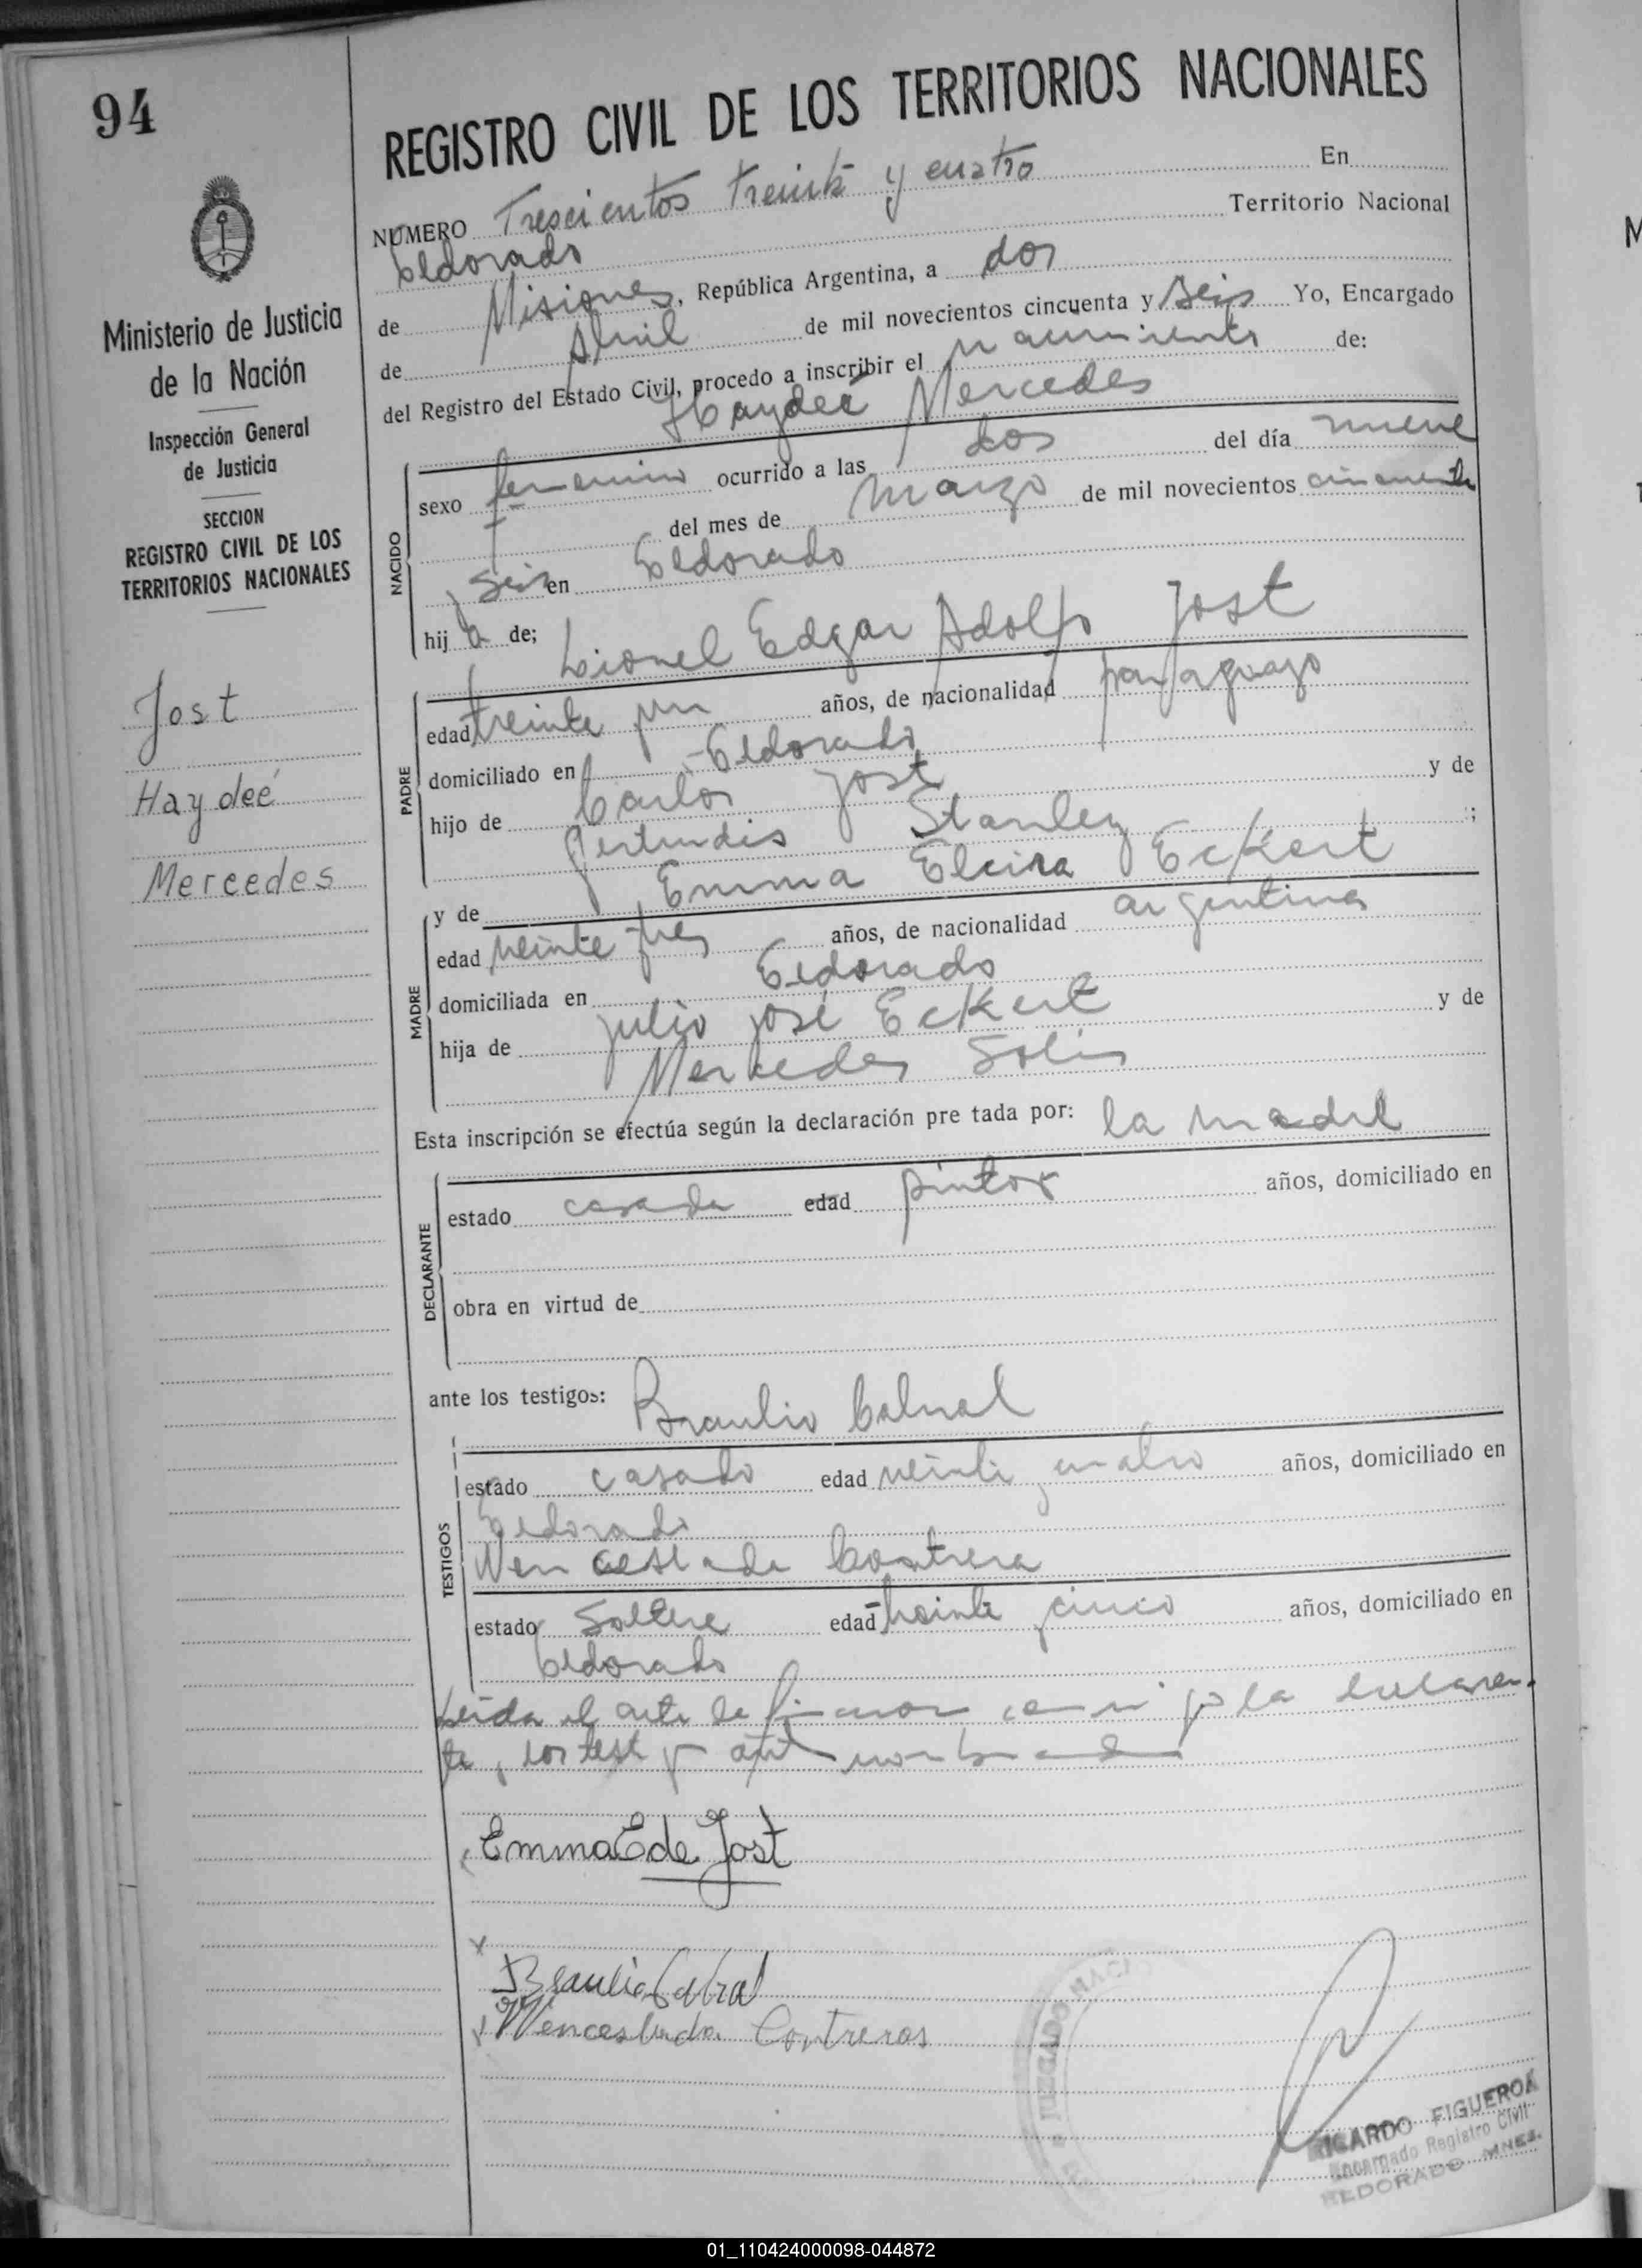 94
Ministerio de Justicia
de la Nación
Inspección General
de Justicia
SECCION
REGISTRO CIVIL DE LOS
TERRITORIOS NACIONALES
Jost
Haydeé
Mercedes
REGISTRO CIVIL DE LOS TERRITORIOS NACIONALES
NUMERO Trescientos treinta y cuatro En
Eldorado Territorio Nacional
de Misiones, República Argentina, a dos
de Abril de mil novecientos cincuenta y seis Yo, Encargado
del Registro del Estado Civil, procedo a inscribir el nacimiento de:
Haydeé Mercedes
NACIDO
sexo femenino ocurrido a las dos del día nueve
del mes de marzo de mil novecientos cincuenta
seis en Eldorado
hij a de;
Lionel Edgar Adolfo Jost
PADRE
edad treinta un años, de nacionalidad paraguayo
domiciliado en Eldorado
hijo de Carlos Jost y de
Gertrudis Stanley ;
y de Emma Elcira Eckert
MADRE
edad veinte tres años, de nacionalidad argentina
domiciliada en Eldorado
hija de Julio José Eckert y de
Mercedes Solis
Esta inscripción se efectúa según la declaración pre tada por: la madre
DECLARANTE
estado casada edad pintor años, domiciliado en
obra en virtud de
ante los testigos: Braulio Cabral
TESTIGOS
estado casado edad veinti cuatro años, domiciliado en
Eldorado
Wenceslada Contrera
estado Soltera edad treinta cinco años, domiciliado en
Eldorado
Leida el acta la firmaron conmigo la declaran-
te, los test
Emma E de Jost
Braulio Cabral
Wenceslada Contreras
JUZGADO
RICARDO FIGUEROA
Encargado Registro Civil
ELDORADO MNES.
01_110424000098-044872